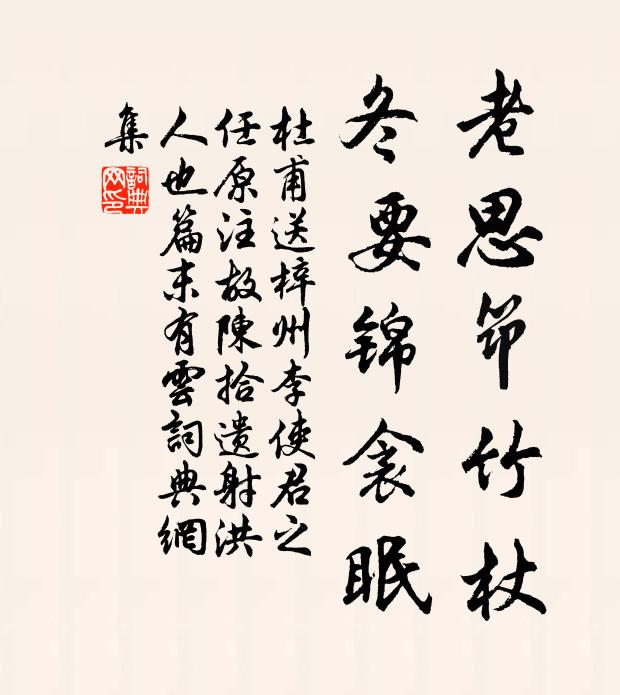 老思筇竹杖
冬要錦衾眠
杜甫送梓州李使君之
任原注故陳拾遺射洪
人也篇末有雲詞典網
集
詞典
网印